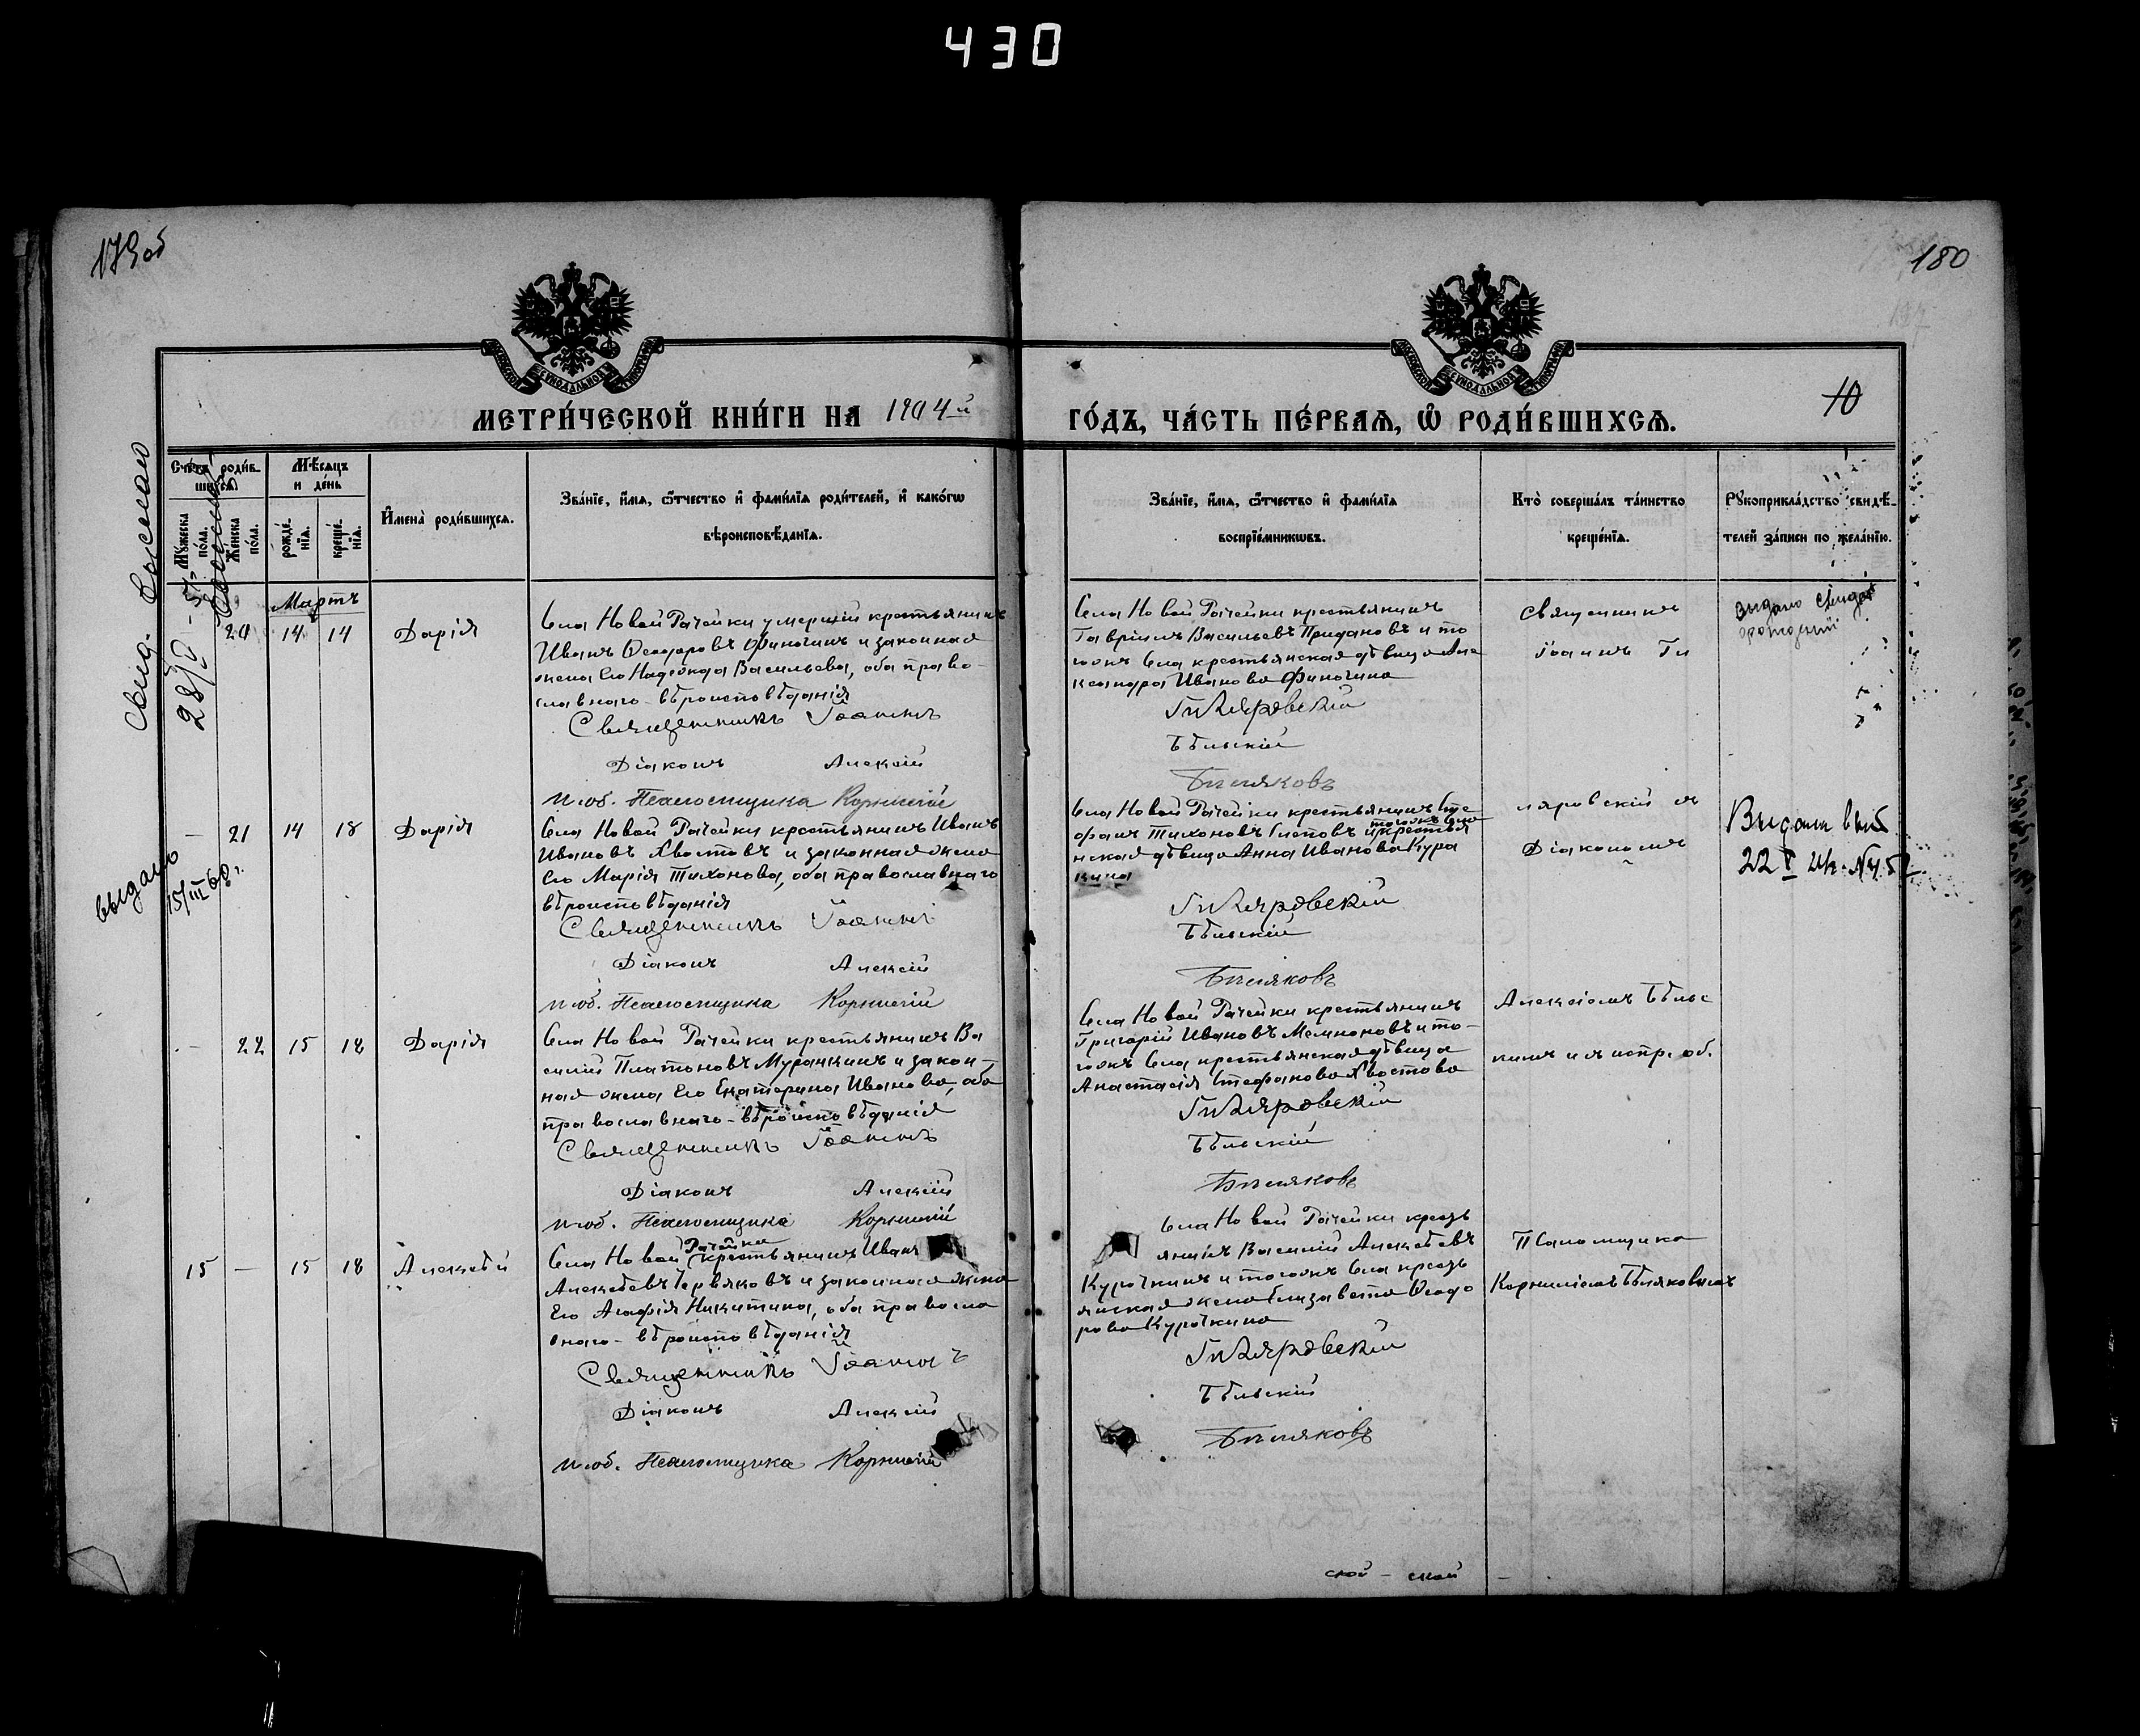 430
179об
180
10
МЕТРИ́ЧЕСКОЙ КНИ́ГИ НА 1904й
ГО́ДЪ, ЧА́СТЬ ПЕ́РВАѦ, Ѽ РОДИ́ВШИХСѦ.
Сче́тъ роди́в-
шихсѧ.
Мѣ́сѧцъ
и де́нь
Мꙋ́жеска по́ла.
Же́нска по́ла.
рожде́нїѧ.
креще́нїѧ.
И҆мена̀ роди́вшихсѧ.
Зва́нїе, и҆́мѧ, ѻ҆́тчество и҆ фами́лїѧ роди́телей, и҆ како́гѡ
вѣроисповѣ́данїѧ.
Зва́нїе, и҆́мѧ, ѻ҆́тчество и҆ фами́лїѧ
воспрїе́мникѡвъ.
Кто̀ соверша́лъ та́инство
креще́нїѧ.
Рꙋкоприкла́дство свидѣ́-
телей за́писи по жела́нїю.
Свид. выслано
28/V - 57
Мартъ
20 14 14 Дарія
Села Новой Рачейки умершій крестьянинъ
Иванъ Ѳеодоровъ Финогинъ и законная
жена его Надежда Васильева, оба право-
славнаго вѣроисповѣданія
Священникъ Іоаннъ
Діаконъ Алексій
и. об. Псаломщика Корнилій
Села Новой Рачейки крестьянинъ
Гавріилъ Васильевъ Придановъ и то
гожъ села крестьянская дѣвица Але
ксандра Иванова Финогина
Гиляровскій
Бѣльскій
Бѣляковъ
Священникъ
Іоаннъ Ги
выдано свид
о рождении
- 21 14 18 Дарія
Села Новой Рачейки крестьянинъ Иванъ
Ивановъ Хвостовъ и законная жена
его Марія Тихонова, оба православнаго
вѣроисповѣданія
Священникъ Іоаннъ
Діаконъ Алексій
и. об. Псаломщика Корнилій
Села Новой Рачейки крестьянинъ Сте
фанъ Тихоновъ Глеповъ и тогожъ села крестья
нская дѣвица Анна Иванова Кура
кина
Гиляровскій
Бѣльскій
Бѣляковъ
ляровскій съ
Діакономъ
22 V
выдано
15/III 68 г.
- 22 15 18 Дарія
Села Новой Рачейки крестьянинъ Ва
силій Платоновъ Муранкинъ и закон-
ная жена его Екатерина Иванова, оба
православнаго - вѣроисповѣданія
Священникъ Іоаннъ
Діаконъ Алексій
и. об. Псаломщика Корнилій
Села Новой Рачейки крестьянинъ
Григорій Ивановъ Мемноновъ и то-
гожъ села крестьянская дѣвица
Анастасія Стефанова Хвостова
Гиляровскій
Бѣльскій
Бѣляковъ
Алексіемъ Бѣльс
кимъ и съ испр. об.
15 - 15 18 Алексѣй
Села Новой Рачейки крестьянинъ Иванъ
Алексѣевъ Червяковъ и законная жена
его Агафія Никитина, оба правосла
внаго - вѣроисповѣданія
Священникъ Іоаннъ
Діаконъ Алексій
и. об. Псаломщика Корнилій
Села Новой Рачейки кресть
янинъ Василій Алексѣевъ
Курочкинъ и тогожъ села кресть
янская жена Елизавета Ѳеодо
рова Курочкина
Гиляровскій
Бѣльскій
Бѣляковъ
Псаломщика
Корниліемъ Бѣляковымъ
ской - ской